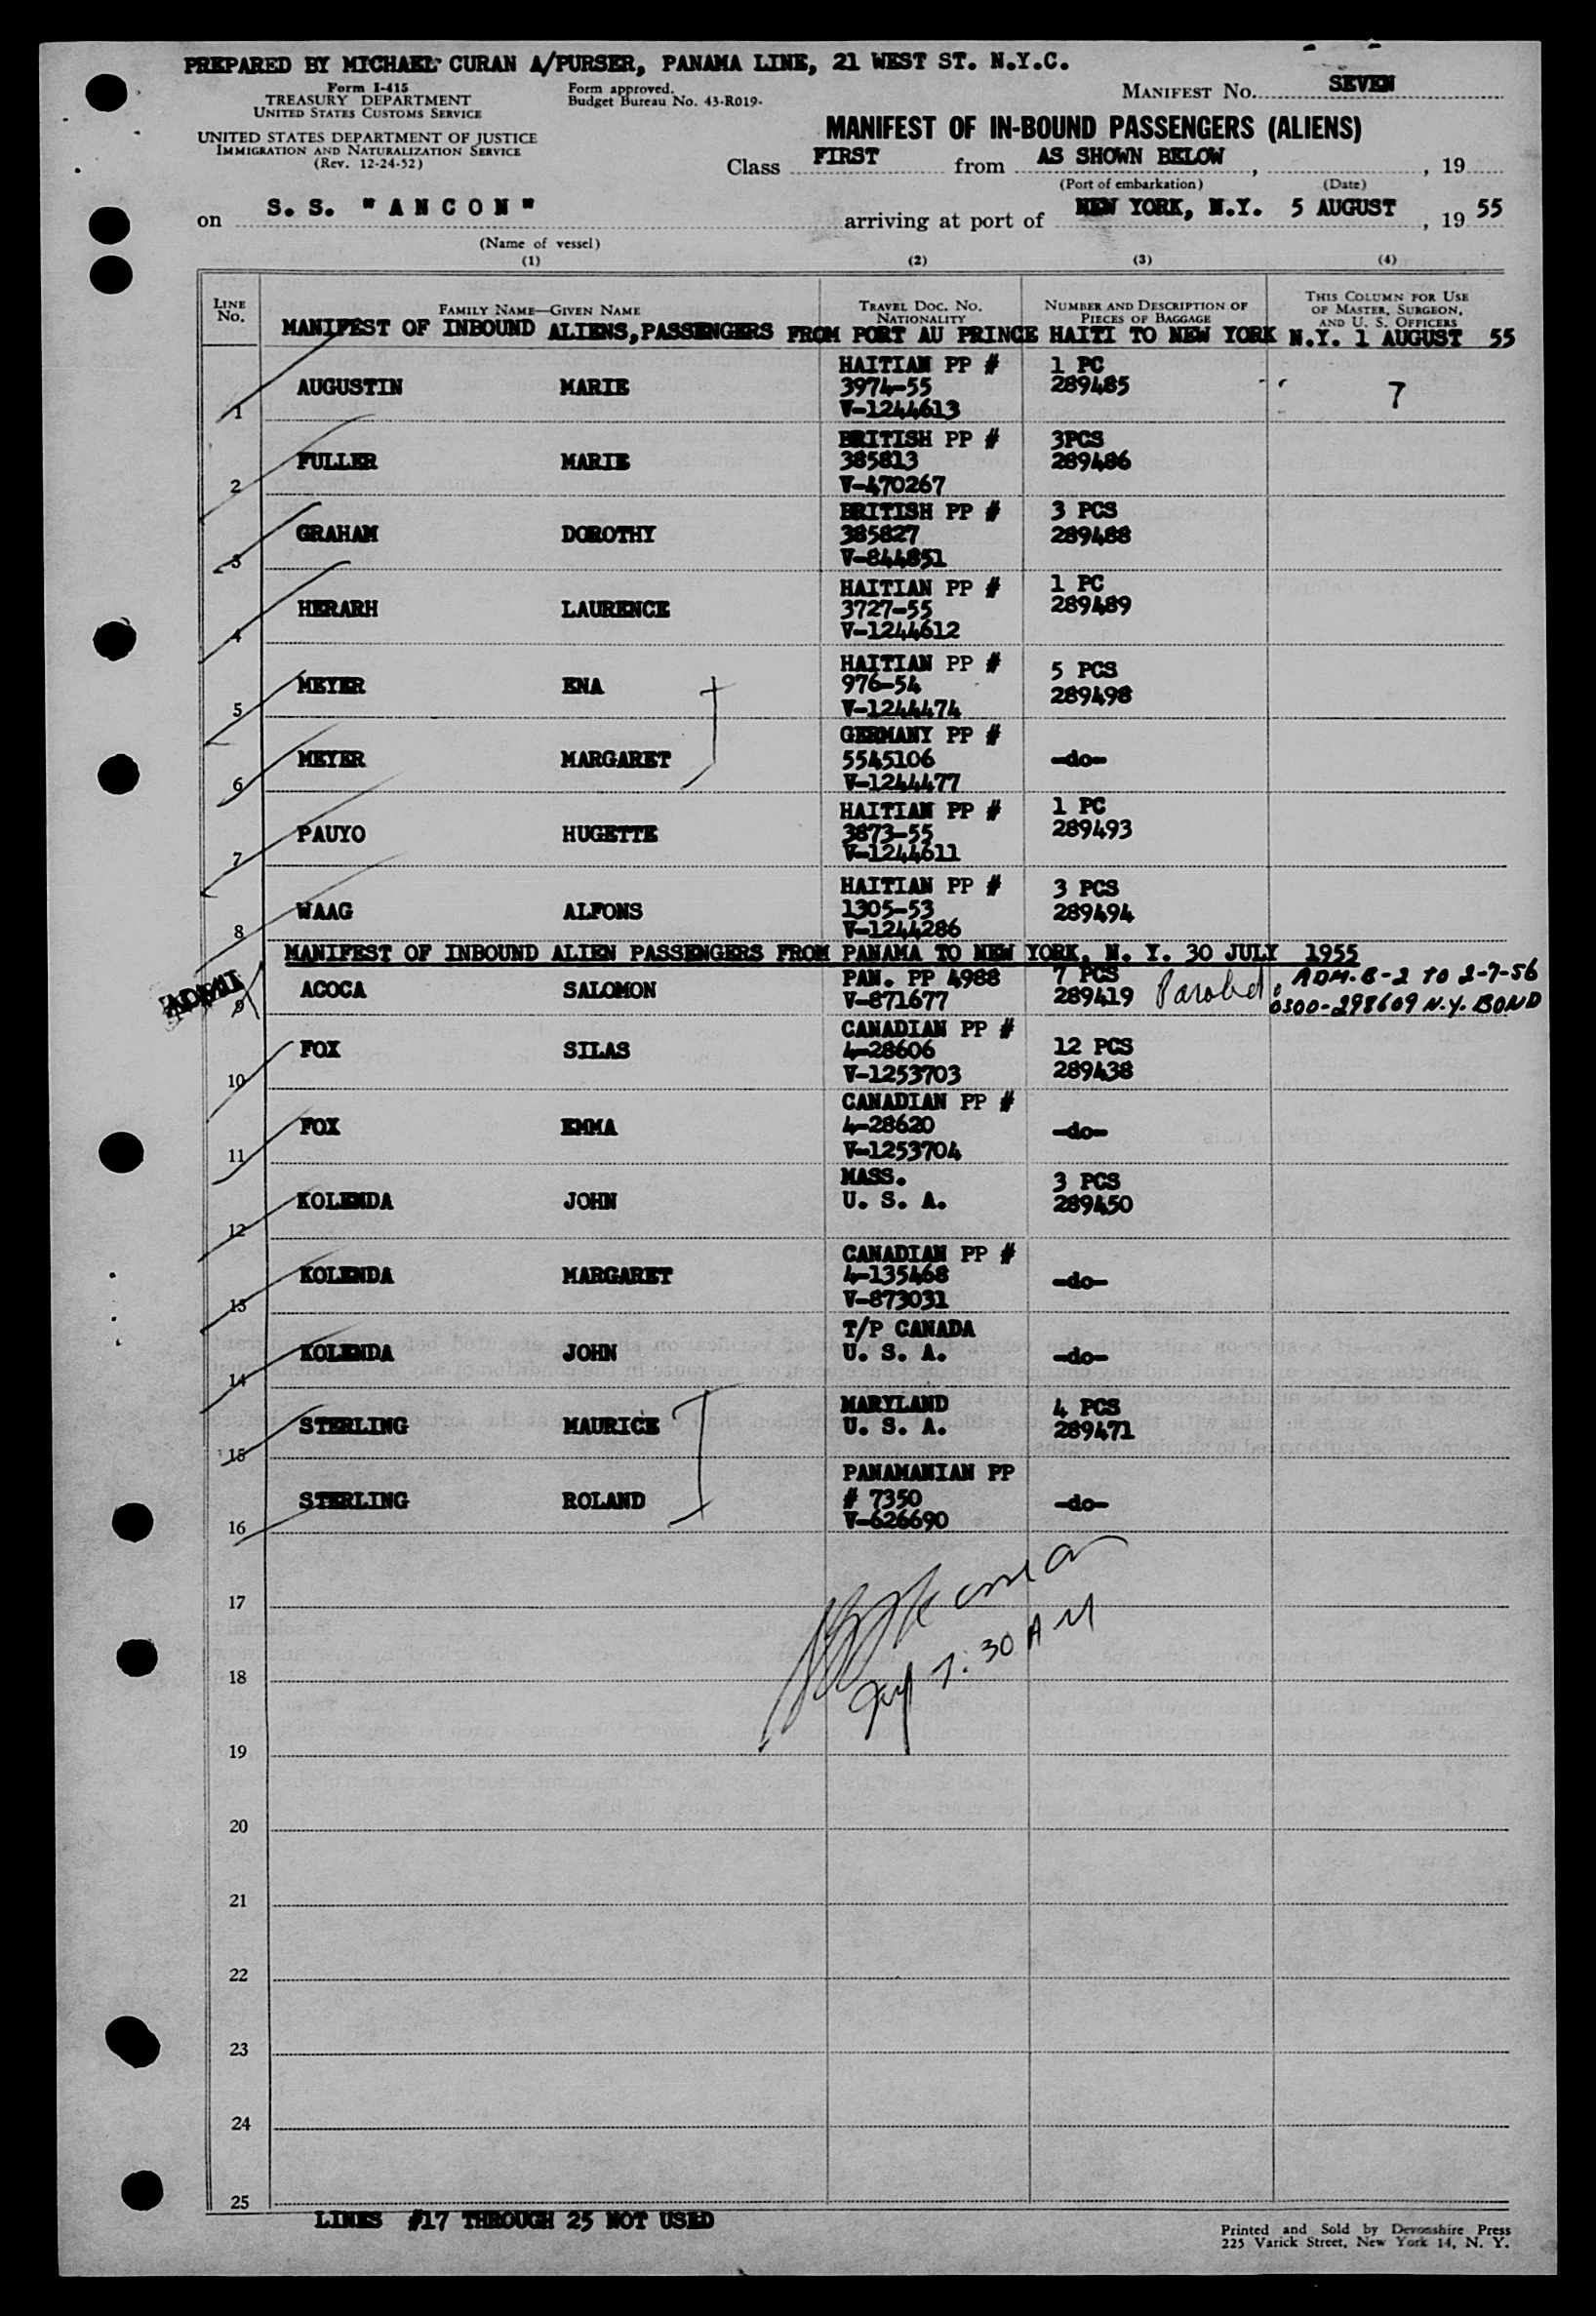 PREPARED BY MICHAEL CURAN A/PURSER, PANAMA LINE, 21 WEST ST. N.Y.C.
Form I-415
TREASURY DEPARTMENT
UNITED STATES CUSTOMS SERVICE
Form approved.
Budget Bureau No. 43-R019.
MANIFEST No. SEVEN
UNITED STATES DEPARTMENT OF JUSTICE
IMMIGRATION AND NATURALIZATION SERVICE
(Rev. 12-24-52)
MANIFEST OF IN-BOUND PASSENGERS (ALIENS)
Class FIRST from AS SHOWN BELOW, , 19
(Port of embarkation) (Date)
on S. S. "ANCON" arriving at port of NEW YORK, N.Y. 5 AUGUST, 19 55
(Name of vessel)
(1) (2) (3) (4)
LINE No. FAMILY NAME—GIVEN NAME TRAVEL DOC. NO. NATIONALITY NUMBER AND DESCRIPTION OF PIECES OF BAGGAGE THIS COLUMN FOR USE OF MASTER, SURGEON, AND U. S. OFFICERS
MANIFEST OF INBOUND ALIENS,PASSENGERS FROM PORT AU PRINCE HAITI TO NEW YORK N.Y. 1 AUGUST 55
1 AUGUSTIN MARIE HAITIAN PP # 3974-55 V-1244613 1 PC 289485 7
2 FULLER MARIE BRITISH PP # 385813 V-470267 3PCS 289486
3 GRAHAM DOROTHY BRITISH PP # 385827 V-844851 3 PCS 289488
4 HERARH LAURENCE HAITIAN PP # 3727-55 V-1244612 1 PC 289489
5 MEYER ENA HAITIAN PP # 976-54 V-1244474 5 PCS 289498
6 MEYER MARGARET GERMANY PP # 5545106 V-1244477 -do-
7 PAUYO HUGETTE HAITIAN PP # 3873-55 V-1244611 1 PC 289493
8 WAAG ALFONS HAITIAN PP # 1305-53 V-1244286 3 PCS 289494
MANIFEST OF INBOUND ALIEN PASSENGERS FROM PANAMA TO NEW YORK, N. Y. 30 JULY 1955
ADMIT 9 ACOCA SALOMON PAN. PP 4988 V-871677 7 PCS 289419 Paroled. ADM. B-2 TO 2-7-56 0300-298609 N.Y. BOND
10 FOX SILAS CANADIAN PP # 4-28606 V-1253703 12 PCS 289438
11 FOX EMMA CANADIAN PP # 4-28620 V-1253704 -do-
12 KOLENDA JOHN MASS. U. S. A. 3 PCS 289450
13 KOLENDA MARGARET CANADIAN PP # 4-135468 V-873031 -do-
14 KOLENDA JOHN T/P CANADA U. S. A. -do-
15 STERLING MAURICE MARYLAND U. S. A. 4 PCS 289471
16 STERLING ROLAND PANAMANIAN PP # 7350 V-626690 -do-
17
7:30 AM
18
19
20
21
22
23
24
25
LINES #17 THROUGH 25 NOT USED
Printed and Sold by Devonshire Press
225 Varick Street, New York 14, N. Y.